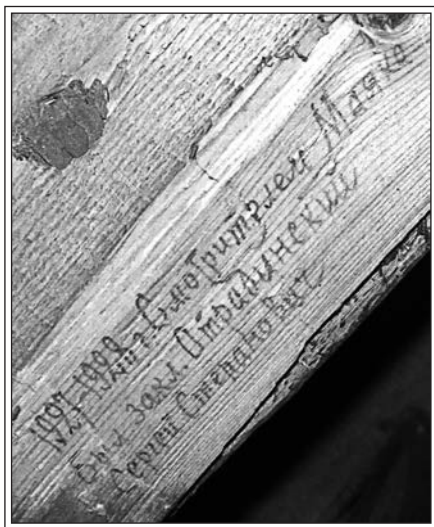 Смотрителем Маяка
был закл. Отрадинский
Сергей Степанович